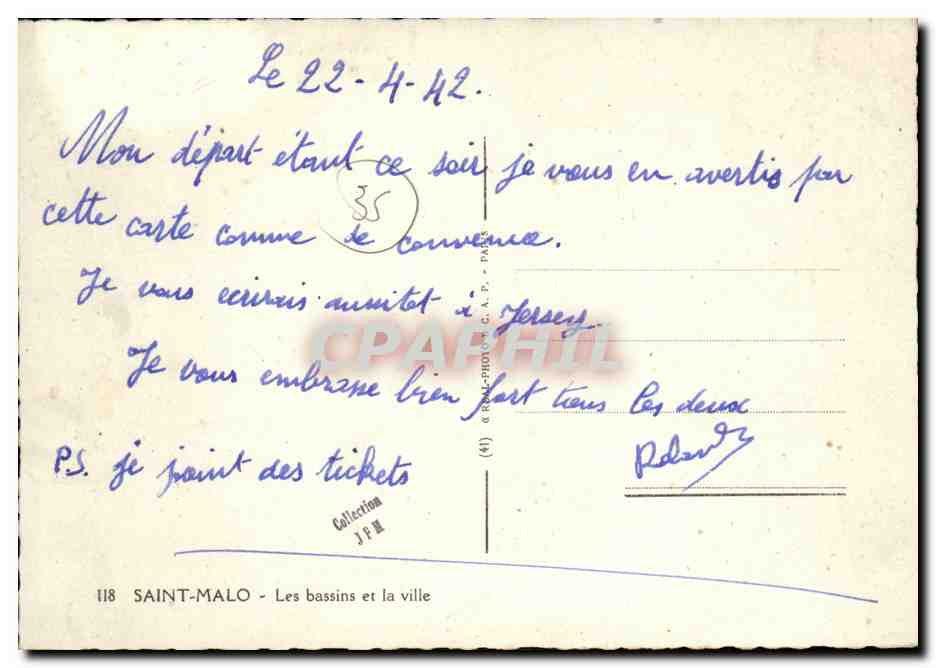 Le 22-4-42.
Mon départ étant ce soir je vous en avertis par
cette carte comme de convenue.
35
Je vous ecrirais aussitot à Jersey.
Je vous embrasse bien fort tous les deux
Roland
P.S. je joint des tickets
Collection
J F M
118 SAINT-MALO - Les bassins et la ville
CPAPHIL